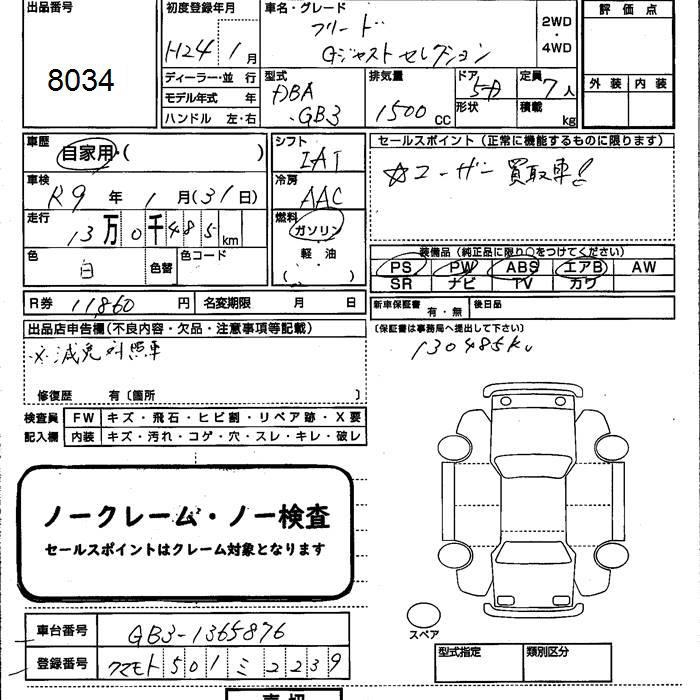 出品番号
8034
初度登録年月
H24年1月
車名・グレード
フリード
Gジャストセレクション
2WD
・
4WD
評価点
外装 内装
ディーラー・並 行
モデル年式 年
ハンドル 左・右
型式
DBA
-GB3
排気量
1500 CC
ドア
5D
形状
定員
7人
積載
kg
車歴
自家用・( )
車検
R9年1月(31日)
走行
13万0千485km
色
白
色替
色コード
シフト
IAT
冷房
AAC
燃料
ガソリン
・
軽 油
( )
セールスポイント(正常に機能するものに限ります)
☆ユーザー買取車!
装備品(純正品に限り○をつけてください)
PS PW ABS エアB AW
SR ナビ TV カワ
R券 11860円
名変期限 月 日
新車保証書
有・無
後日品
(保証書は事務局へ提出して下さい)
130485km
出品店申告欄(不良内容・欠品・注意事項等記載)
※減免対照車
修復歴 有〔箇所 〕
検査員
記入欄
FW キズ・飛石・ヒビ割・リペア跡・X要
内装 キズ・汚れ・コゲ・穴・スレ・キレ・破レ
ノークレーム・ノー検査
セールスポイントはクレーム対象となります
車台番号 GB3-1365876
登録番号 クマモト501ミ2239
スペア
型式指定
類別区分